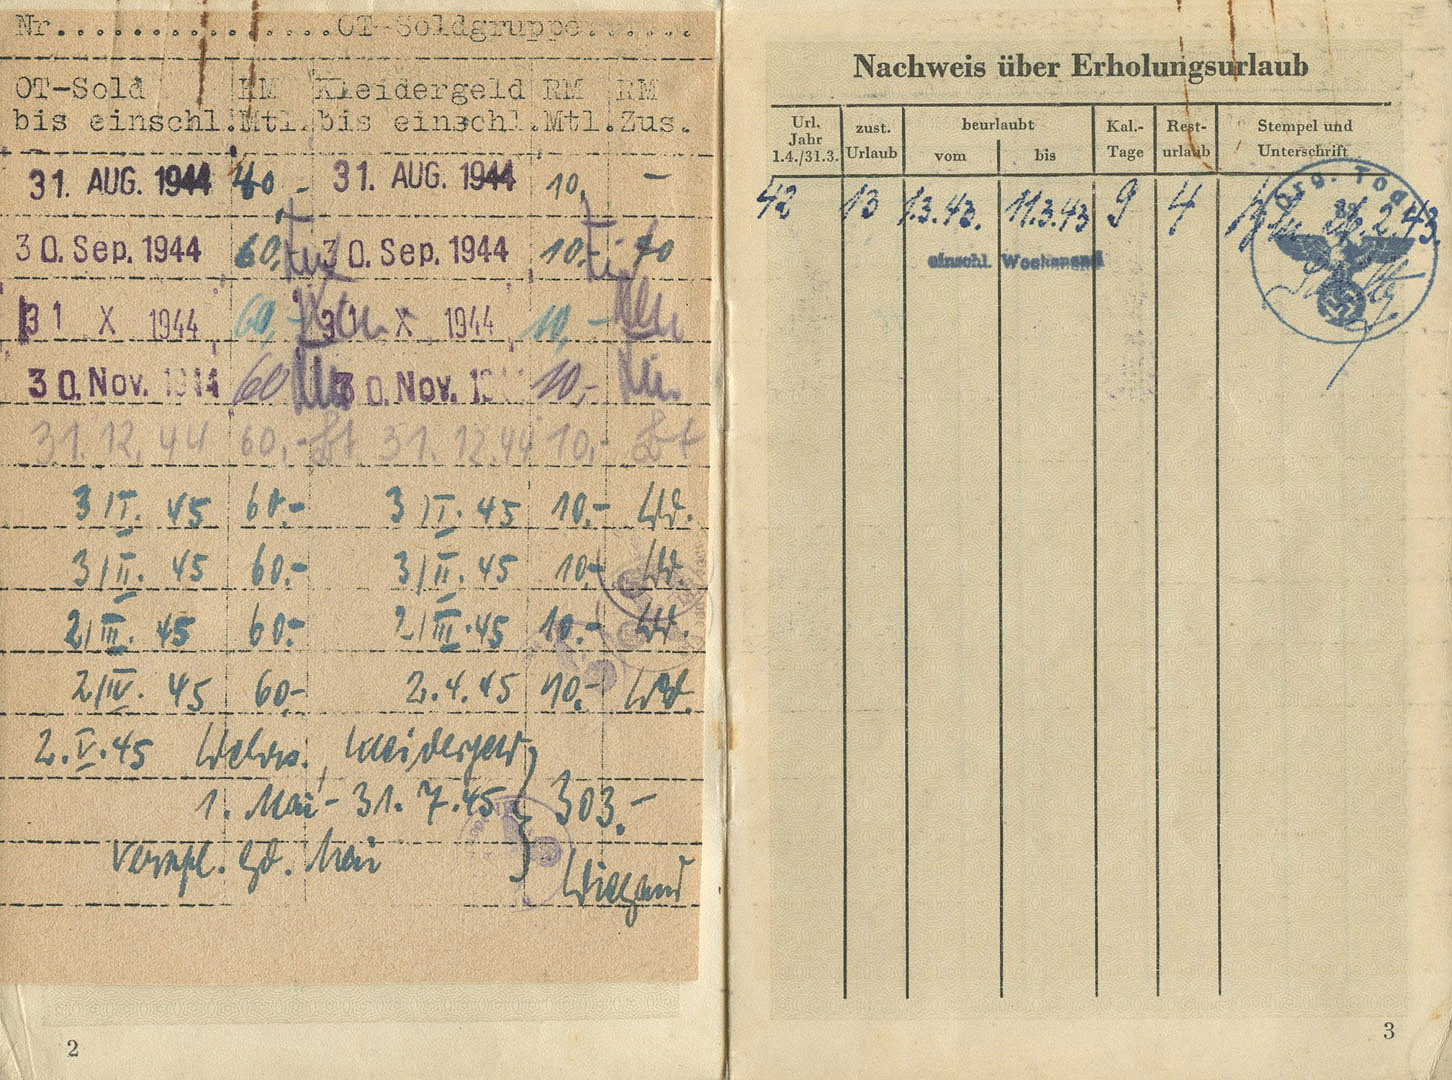 Nr.................OT-Soldgruppe.......
OT-Sold RM Kleidergeld RM RM
bis einschl. Mtl. bis einschl. Mtl. Zus.
31. AUG. 1944 40 - 31. AUG. 1944 10,- -
30. Sep. 1944 60,- 30. Sep. 1944 10,-
31 X 1944 60,- 31 X 1944 10,-
30. Nov. 1944 60 30. Nov. 10,-
31.12.44 60,- 31.12.44 10,-
31/I. 45 60.- 31/I. 45 10,-
31/II. 45 60.- 31/II. 45 10,-
2/III. 45 60.- 2/III. 45 10.-
2/IV. 45 60- 2.4.45 10.-
2.V.45 Kleidergeld
1. Mai - 31.7.45 303.-
Verpfl. Gd. Mai
Wiegand
2
Nachweis über Erholungsurlaub
Url. Jahr 1.4./31.3. zust. Urlaub beurlaubt vom bis Kal.-Tage Rest-urlaub Stempel und Unterschrift
42 13 1.3.43. 11.3.43 9 4 26.2.43.
einschl. Wochenend
Org. Tod
3